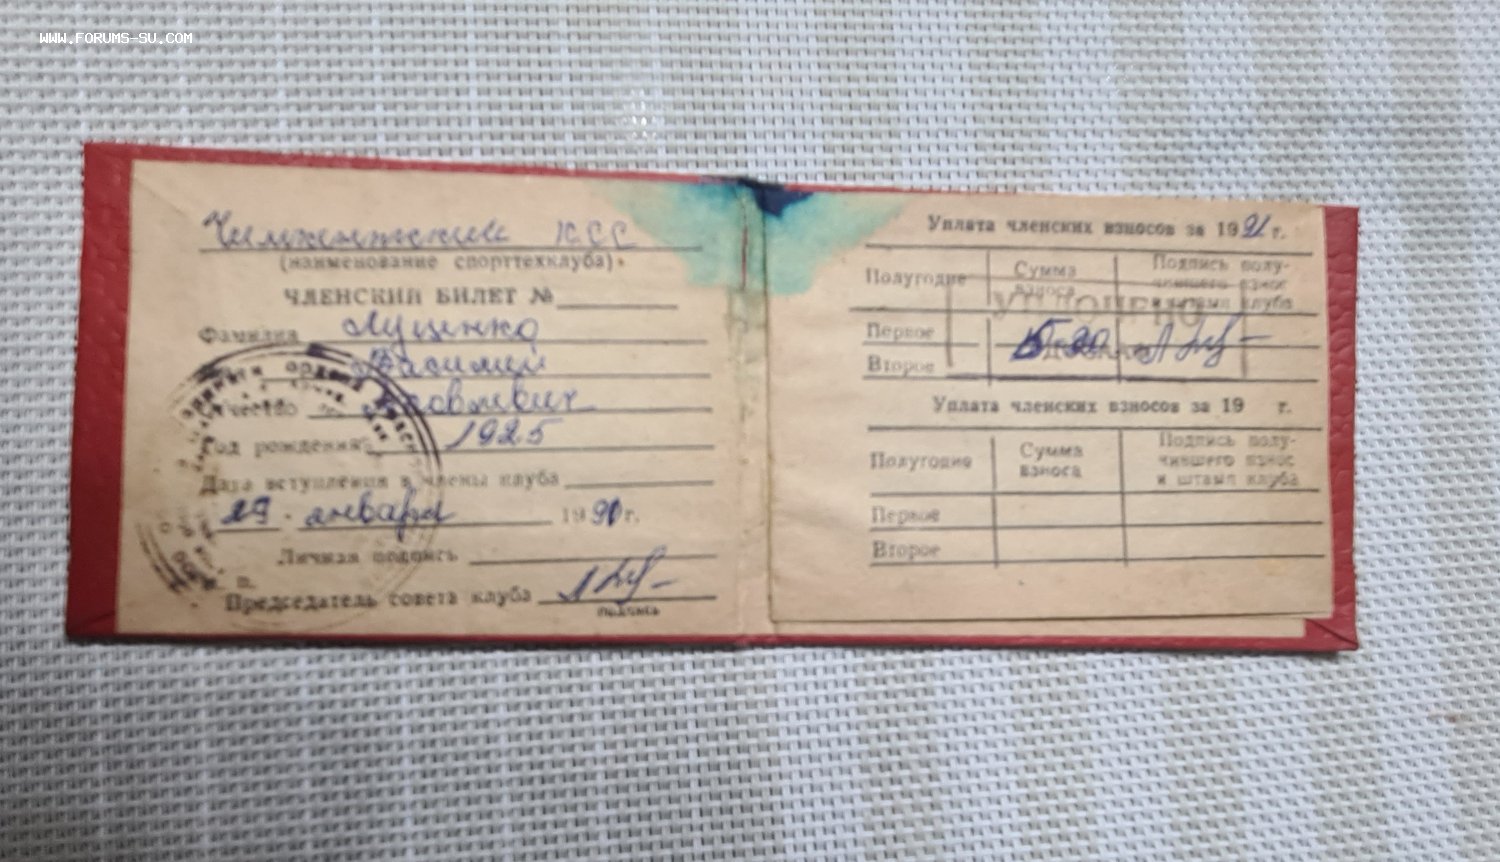 WWW.FORUMS-SU.COM
Чимкентский КСС
(наименование спорттехклуба).
ЧЛЕНСКИЙ БИЛЕТ №
Фамилия Луценко
Василий
Отчество Яковлевич
Год рождения 1925
Дата вступления в члены клуба
января 1990 г.
Личная подпись
п.
Председатель совета клуба
подпись
Уплата членских взносов за 1991 г.
Полугодие
Сумма взноса
Подпись полу-
чившего взнос
и штамп клуба
УПЛОЧЕНО
Первое
Второе
Уплата членских взносов за 19 г.
Полугодие
Сумма взноса
Подпись полу-
чившего взнос
и штамп клуба
Первое
Второе